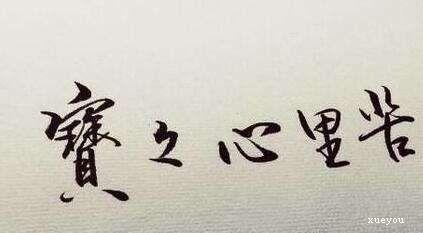 寶々心里苦
xueyou